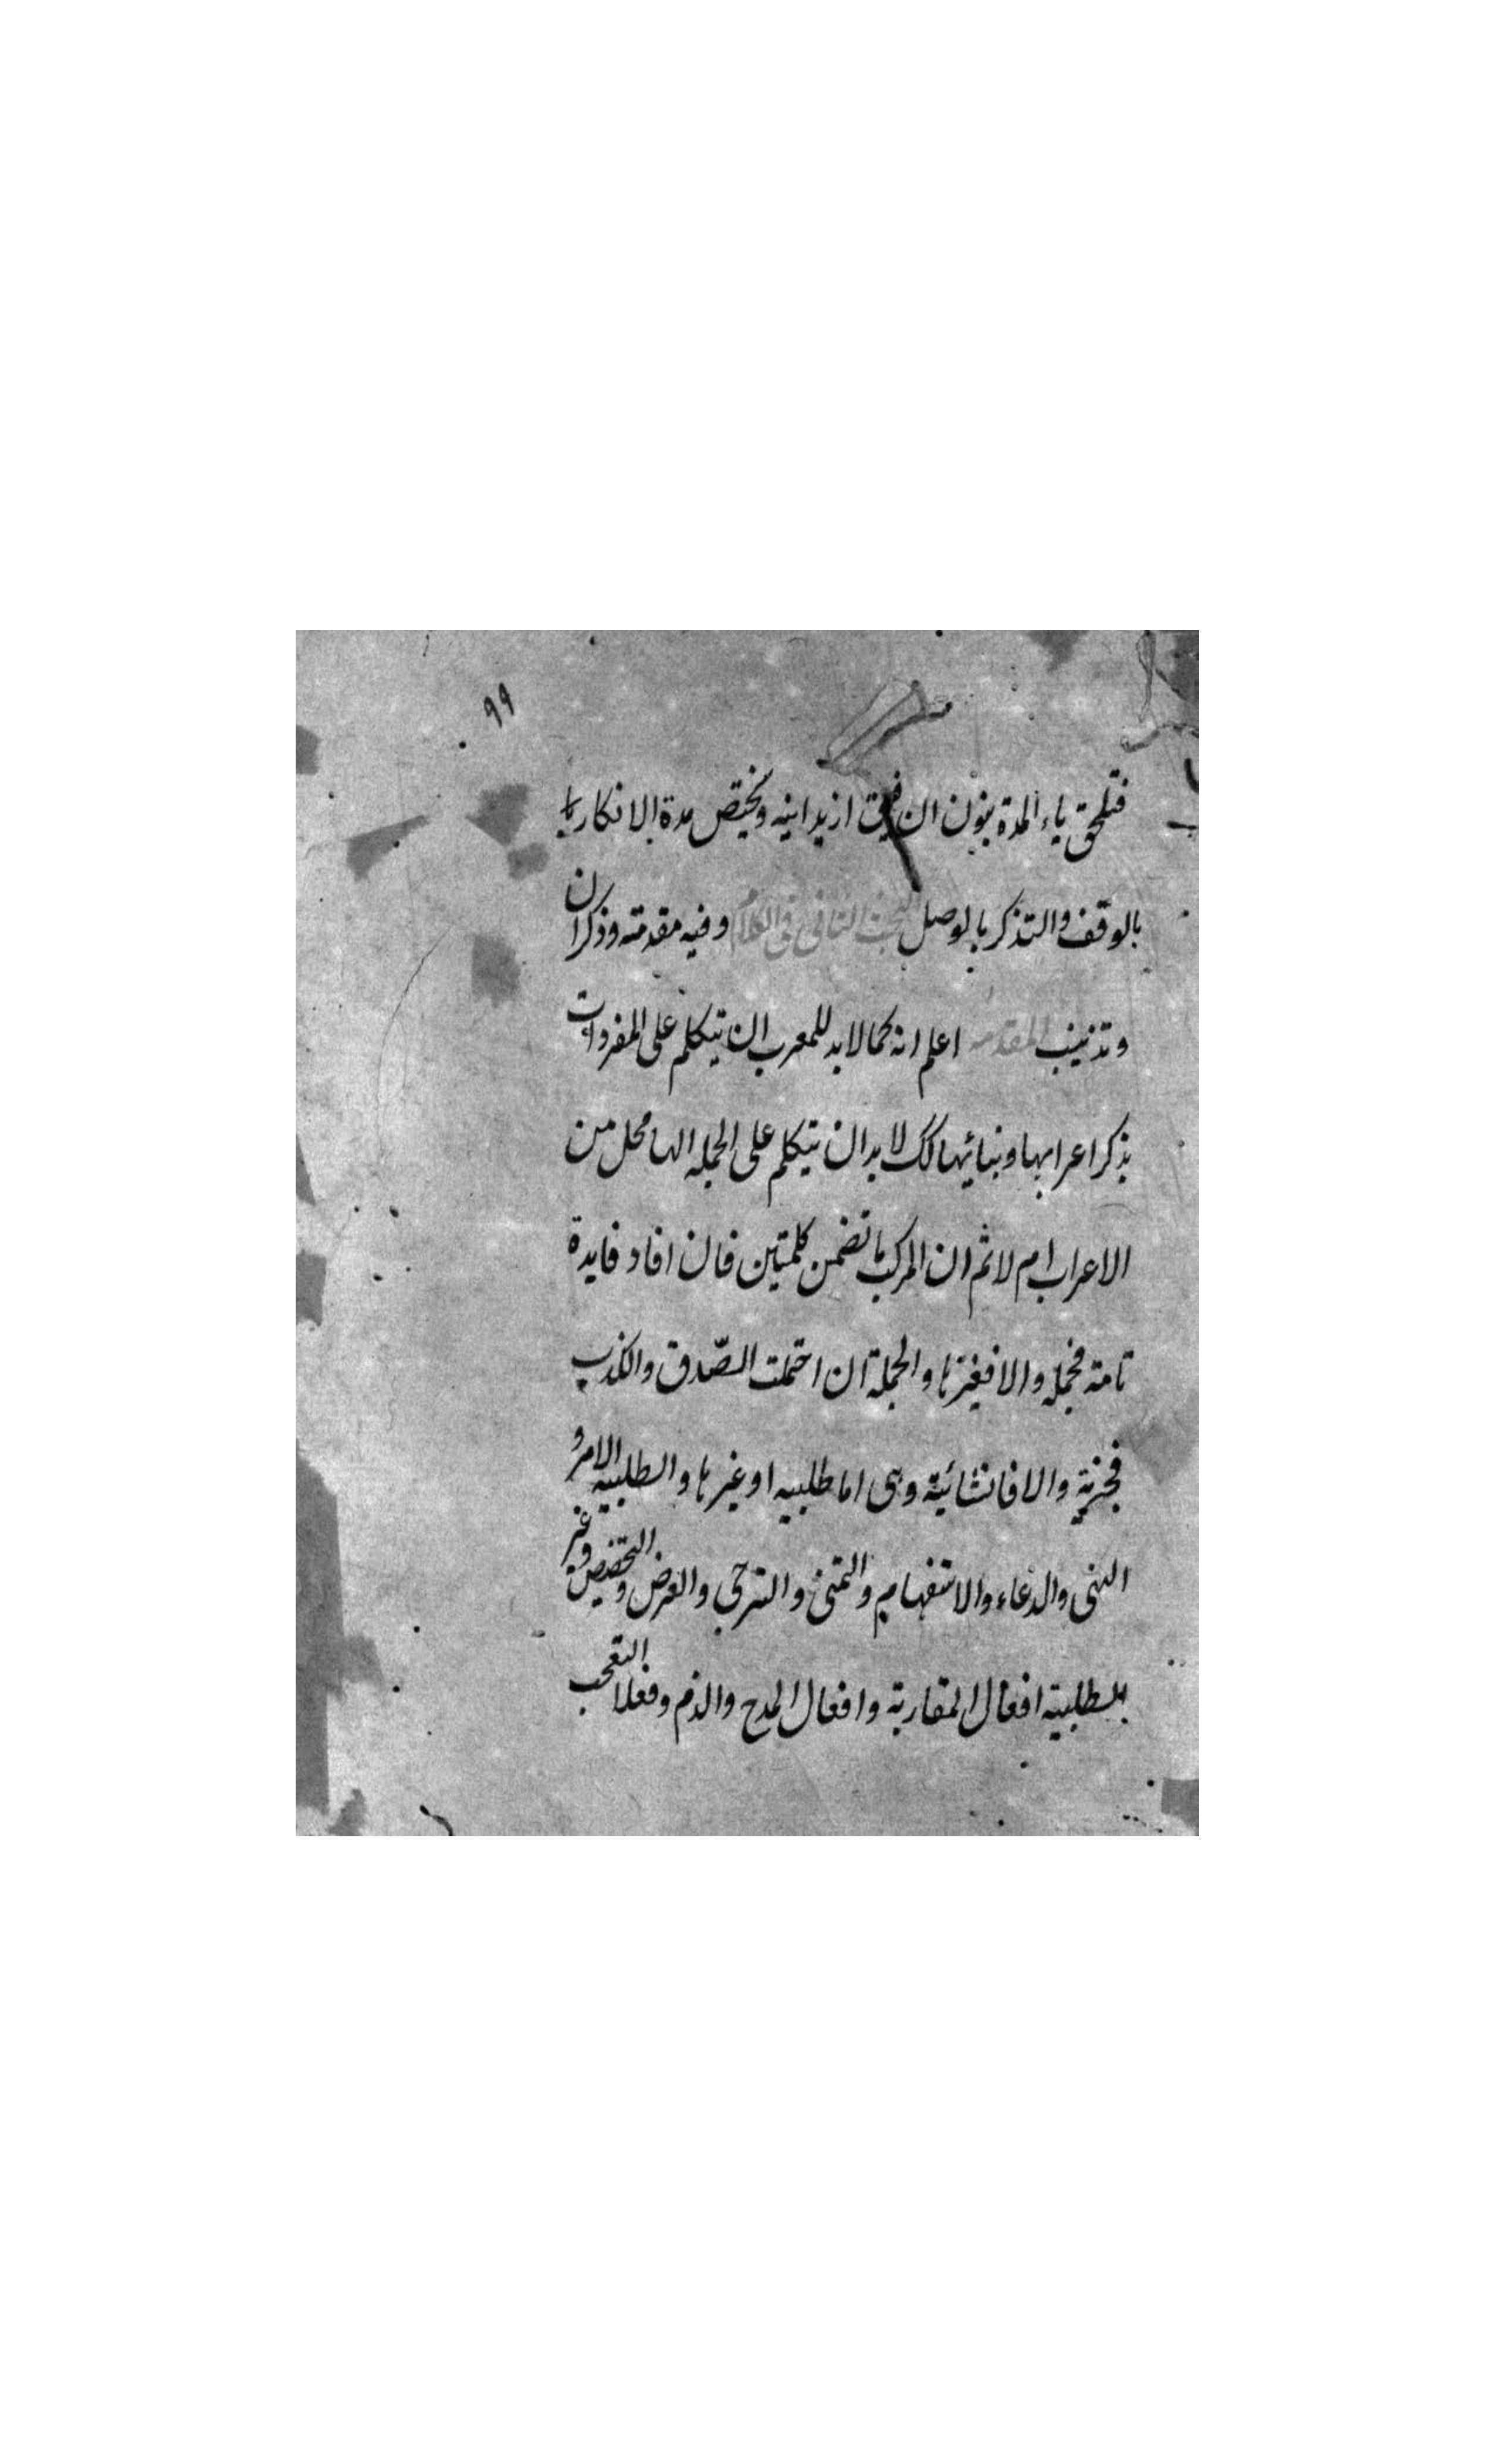 ٩٩
فتلحق ياء المدة بنون ان فيق ازيدانيه ويختص مدة الانكار
بالوقف والتذكر بالوصل البحث الثانى فى الكلام وفيه مقدمته وذكران
وتذنيب المقدمه اعلم انه كما لابد للمعرب ان يتكلم على المفردات
بذكر اعرابها وبنائها كك لابد ان يتكلم على الجمله الها محل من
الاعراب ام لا ثم ان المركب ما تضمن كلمتين فان افاد فايدة
تامة فجمله والا فغيرها والجملة ان احتملت الصّدق والكذب
فخبرية والا فانشائية وهى اما طلبيه او غيرها والطلبيه الامر و
النهى والدعاء والاستفهام والتمنى والترجى والعرض والتحضيض وغير
الطلبية افعال المقاربة وافعال المدح والذم وفعلا التعجب